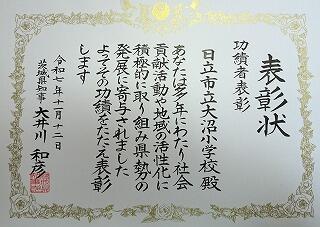 表彰状
功績者表彰
日立市立大沼小学校 殿
あなたは多年にわたり社会
貢献活動や地域の活性化に
積極的に取り組み県勢の
発展に寄与されました
よってその功績をたたえ表彰
します
令和七年十一月十三日
茨城県知事 大井川 和彦